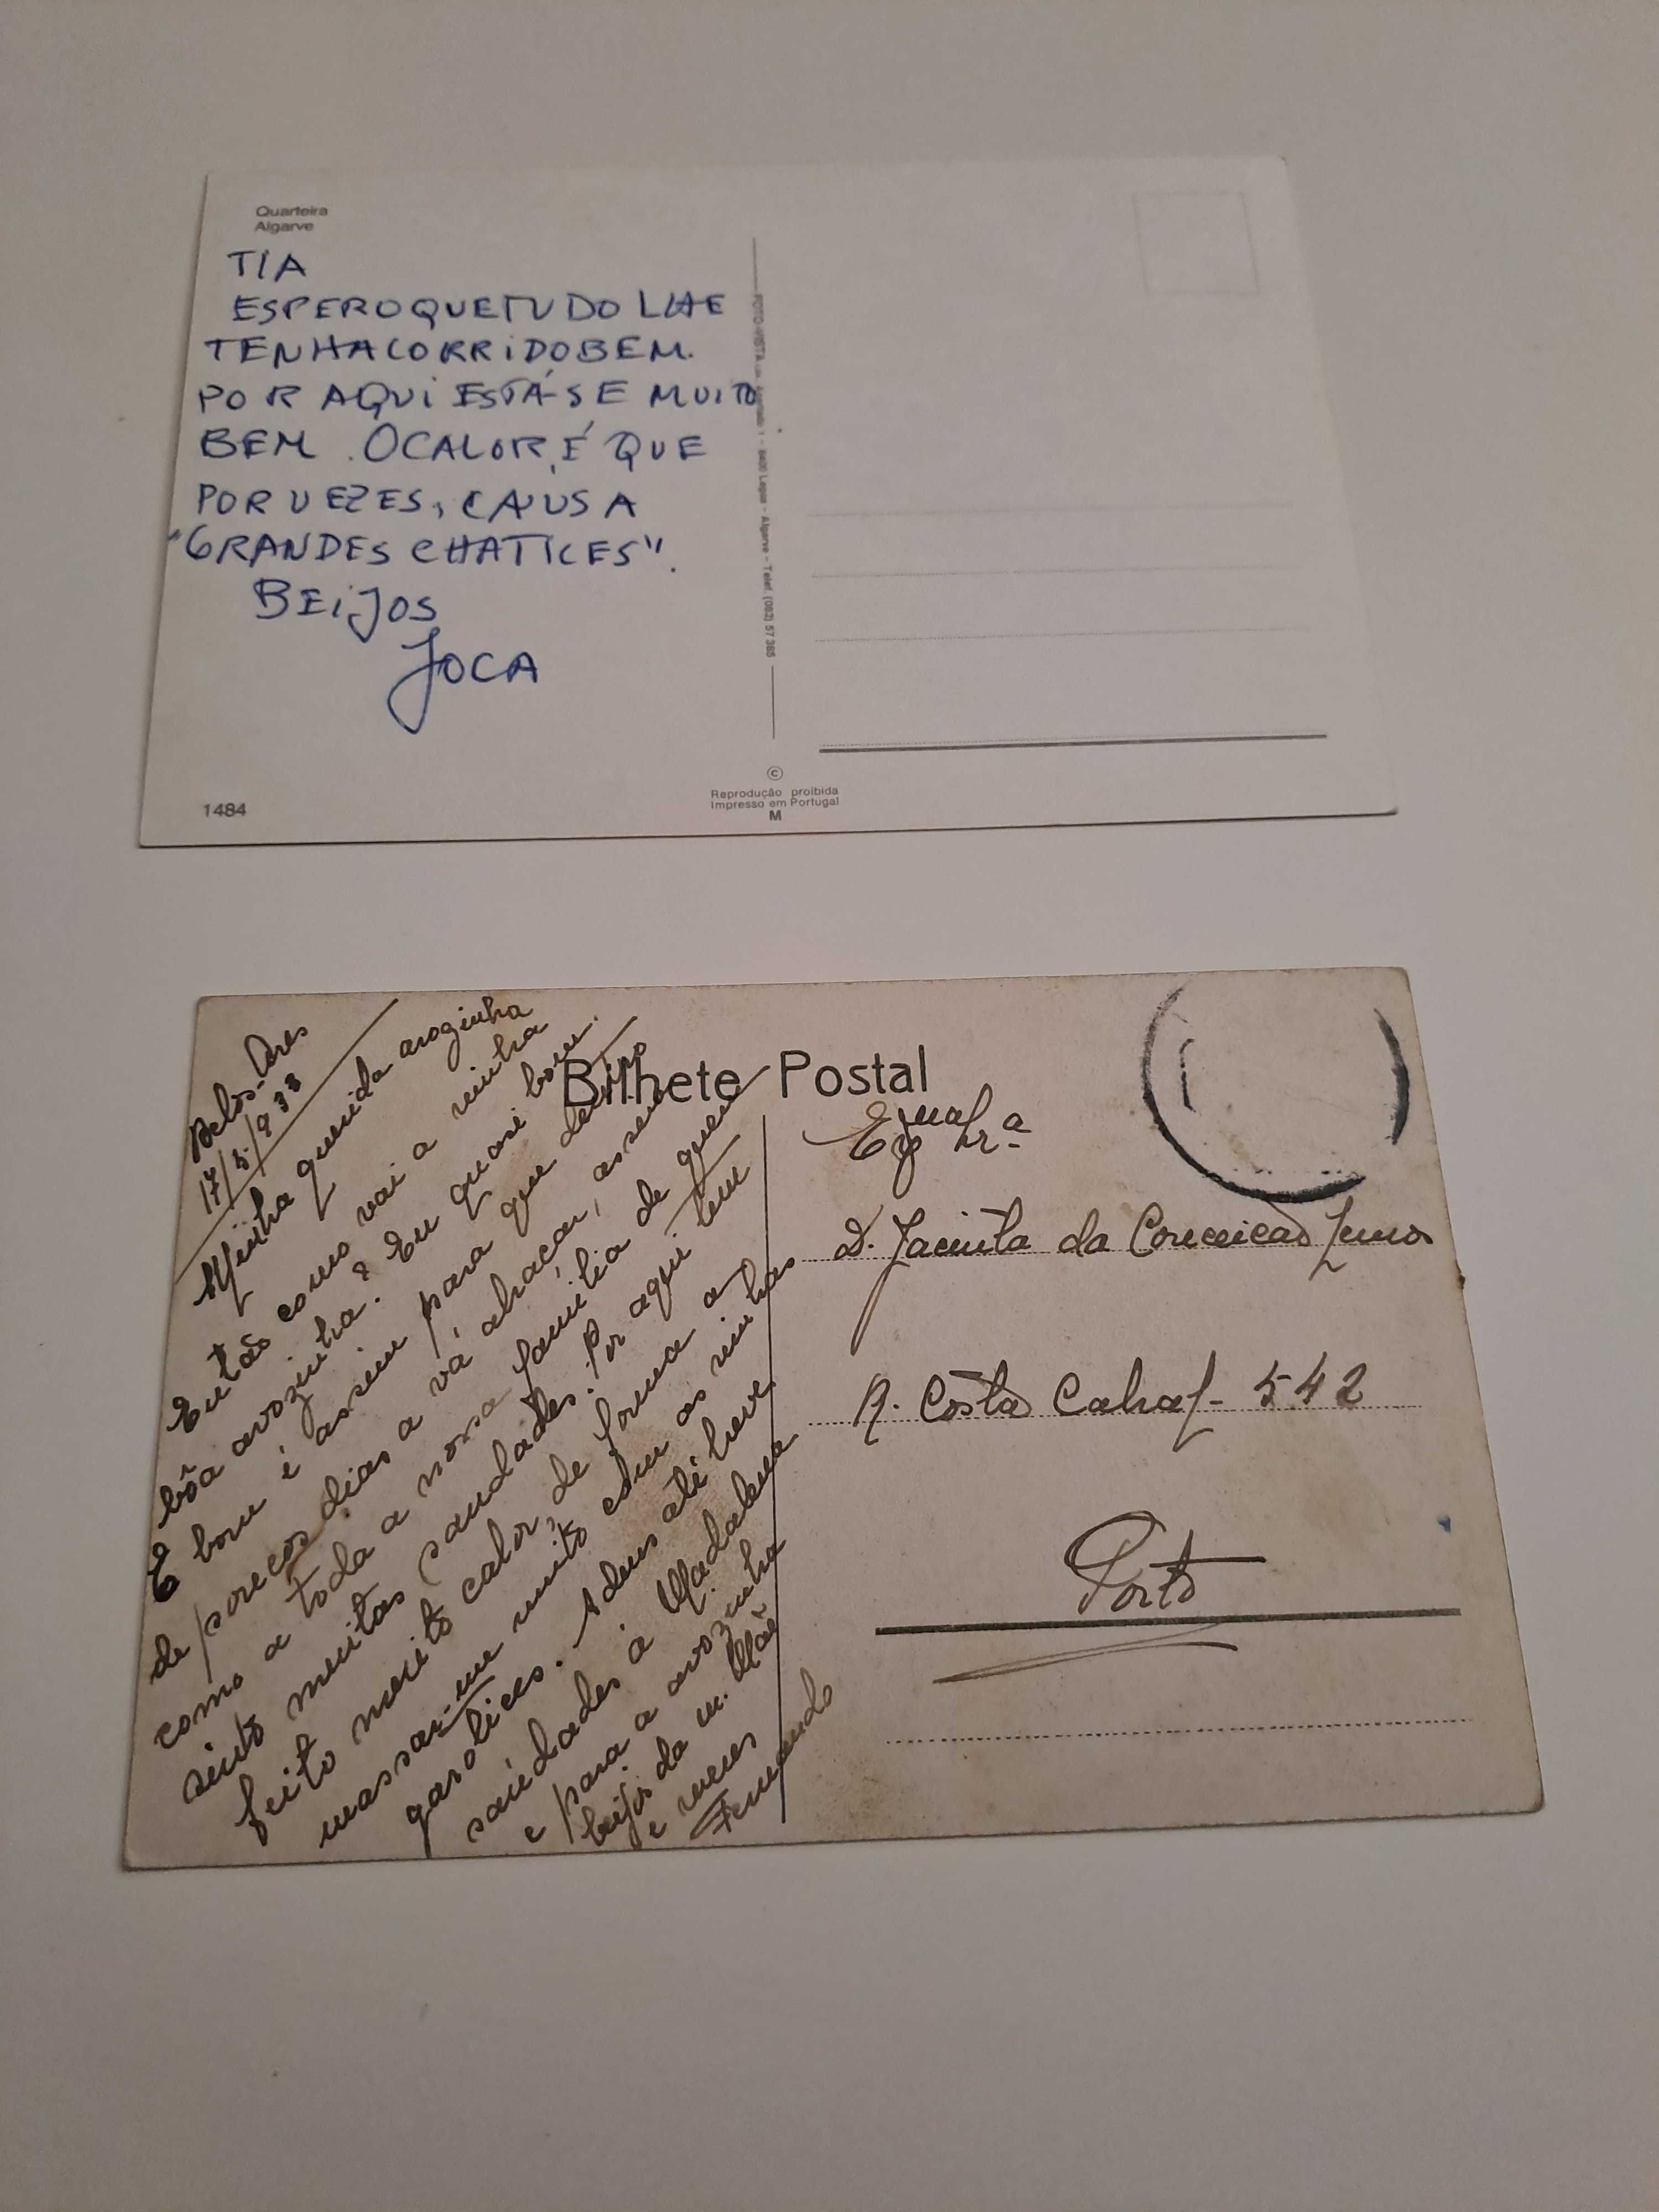 Quarteira
Algarve
TIA
ESPERO QUE TUDO LHE
TENHA CORRIDO BEM.
POR AQUI ESTÁ-SE MUITO
BEM. O CALOR, É QUE
POR VEZES, CAUSA
"GRANDES CHATICES".
BEIJOS
JOCA
1484
FOTO-VISTA 1 - 8400 Lagoa - Algarve - Telef. (082) 57 385
©
Reprodução proíbida
Impresso em Portugal
M
Belos-Ares
17/5/938
Minha querida avozinha
Então como vai a minha
bôa avozinha? Eu quasi bom.
E bom é assim para que dentro
de poucos dias a vá abraçar, assim
como a toda a nossa familia de quem
sinto muitas saudades. Por aqui tem
feito muito calor, de forma a
massar-me muito com as minhas
garotices. Adeus até breve.
saúdades á Madalena
e para a avozinha
beijos da m. Mãe
e meus
Fernando
Bilhete Postal
Exma Sr.ª
D. Jacinta da Conceicão Lemos
R. Costa Cabral - 542
Porto